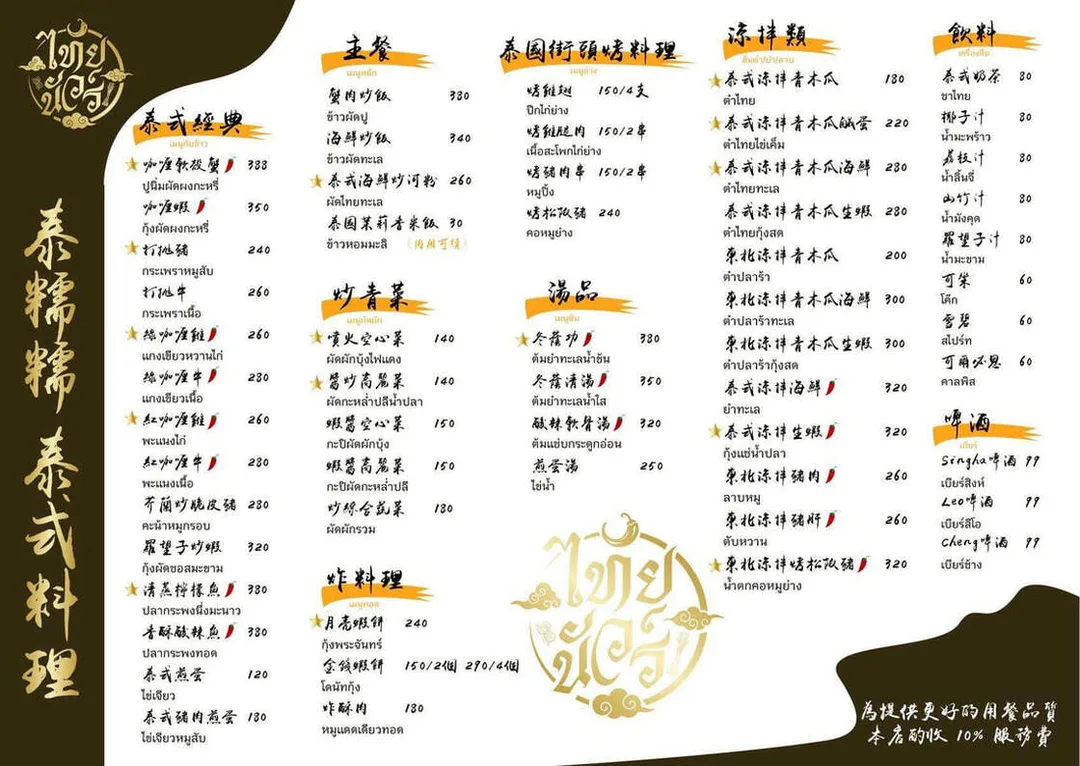 ไทย
นัวร์
泰糯糯 泰式料理
泰式經典
เมนูกับข้าว
咖喱軟殼蟹 388
ปูนิ่มผัดผงกะหรี่
咖喱蝦 350
กุ้งผัดผงกะหรี่
打拋豬 240
กระเพราหมูสับ
打拋牛 260
กระเพราเนื้อ
綠咖喱雞 260
แกงเขียวหวานไก่
綠咖喱牛 280
แกงเขียวเนื้อ
紅咖喱雞 260
พะแนงไก่
紅咖喱牛 280
พะแนงเนื้อ
芥蘭炒脆皮豬 280
คะน้าหมูกรอบ
羅望子炒蝦 320
กุ้งผัดซอสมะขาม
清蒸檸檬魚 380
ปลากระพงนึ่งมะนาว
香酥酸辣魚 380
ปลากระพงทอด
泰式煎蛋 120
ไข่เจียว
泰式豬肉煎蛋 180
ไข่เจียวหมูสับ
主餐
เมนูหลัก
蟹肉炒飯 380
ข้าวผัดปู
海鮮炒飯 340
ข้าวผัดทะเล
泰式海鮮炒河粉 260
ผัดไทยทะเล
泰國茉莉香米飯 30
ข้าวหอมมะลิ (內用可續)
炒青菜
เมนูผัดผัก
噴火空心菜 140
ผัดผักบุ้งไฟแดง
醬炒高麗菜 140
ผัดกะหล่ำปลีน้ำปลา
蝦醬空心菜 150
กะปิผัดผักบุ้ง
蝦醬高麗菜 150
กะปิผัดกะหล่ำปลี
炒綜合蔬菜 180
ผัดผักรวม
炸料理
เมนูทอด
月亮蝦餅 240
กุ้งพระจันทร์
金錢蝦餅 150/2個 290/4個
โดนัทกุ้ง
炸酥肉 180
หมูแดดเดียวทอด
泰國街頭烤料理
เมนูย่าง
烤雞翅 150/4支
ปีกไก่ย่าง
烤雞腿肉 150/2串
เนื้อสะโพกไก่ย่าง
烤豬肉串 150/2串
หมูปิ้ง
烤松阪豬 240
คอหมูย่าง
湯品
เมนูต้ม
冬蔭功 380
ต้มยำทะเลน้ำข้น
冬蔭清湯 350
ต้มยำทะเลน้ำใส
酸辣軟骨湯 320
ต้มแซ่บกระดูกอ่อน
煎蛋湯 250
ไข่น้ำ
ไทย
นัวร์
涼拌類
ส้มตำ/ยำ/ลาบ
泰式涼拌青木瓜 180
ตำไทย
泰式涼拌青木瓜鹹蛋 220
ตำไทยไข่เค็ม
泰式涼拌青木瓜海鮮 280
ตำไทยทะเล
泰式涼拌青木瓜生蝦 280
ตำไทยกุ้งสด
東北涼拌青木瓜 200
ตำปลาร้า
東北涼拌青木瓜海鮮 300
ตำปลาร้าทะเล
東北涼拌青木瓜生蝦 300
ตำปลาร้ากุ้งสด
泰式涼拌海鮮 320
ยำทะเล
泰式涼拌生蝦 320
กุ้งแช่น้ำปลา
東北涼拌豬肉 260
ลาบหมู
東北涼拌豬肝 260
ตับหวาน
東北涼拌烤松阪豬 320
น้ำตกคอหมูย่าง
飲料
เครื่องดื่ม
泰式奶茶 80
ชาไทย
椰子汁 80
น้ำมะพร้าว
荔枝汁 80
น้ำลิ้นจี่
山竹汁 80
น้ำมังคุด
羅望子汁 80
น้ำมะขาม
可樂 60
โค๊ก
雪碧 60
สไปร์ท
可爾必思 60
คาลพิส
啤酒
เบียร์
Singha啤酒 99
เบียร์สิงห์
Leo啤酒 99
เบียร์ลีโอ
Cheng啤酒 99
เบียร์ช้าง
為提供更好的用餐品質
本店酌收 10% 服務費